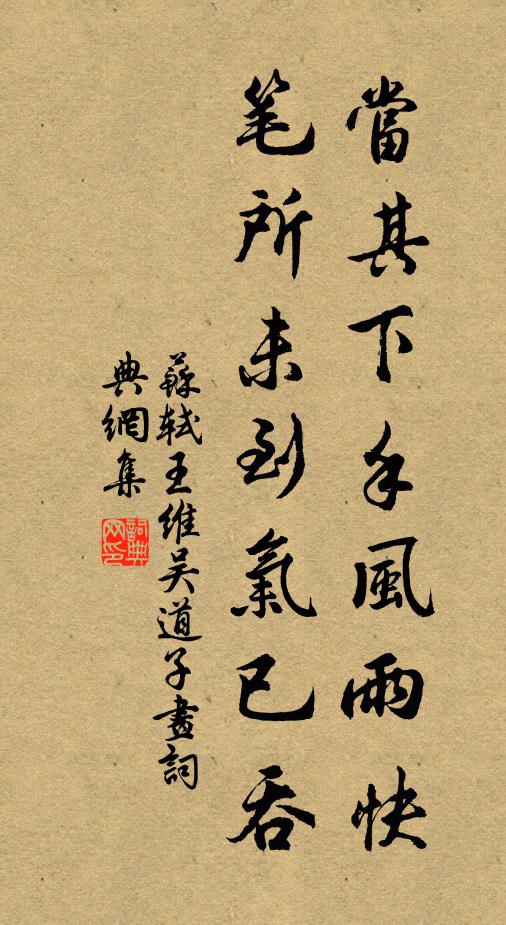 當其下手風雨快
笔所未到氣已吞
蘇軾王維吴道子畫詞
典網集
詞典網印